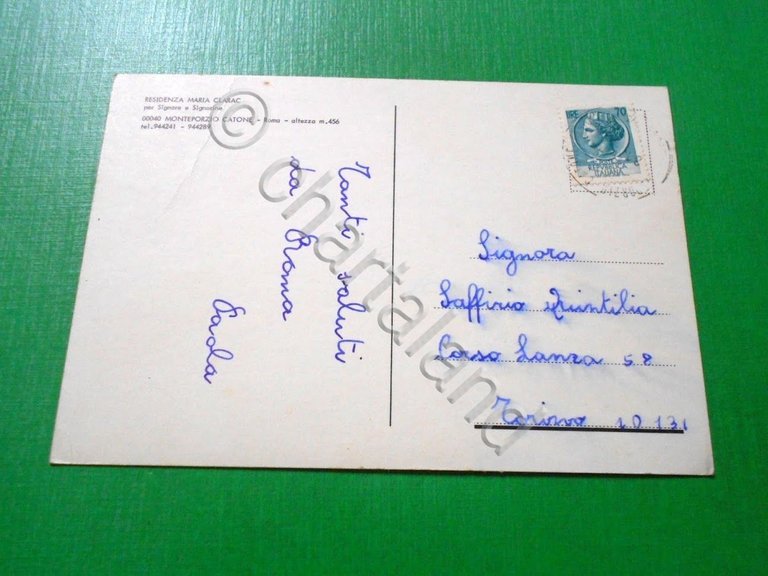 RESIDENZA MARIA CLARAC
per Signore e Signorine
00040 MONTEPORZIO CATONE - Roma - altezza m.456
tel. 944241 - 944289
Tanti saluti
da Roma
Paola
LIRE 70
REPUBBLICA
ITALIANA
Signora
Saffirio Quintilia
Corso Lanza 58
Torino 10131
© chartaland